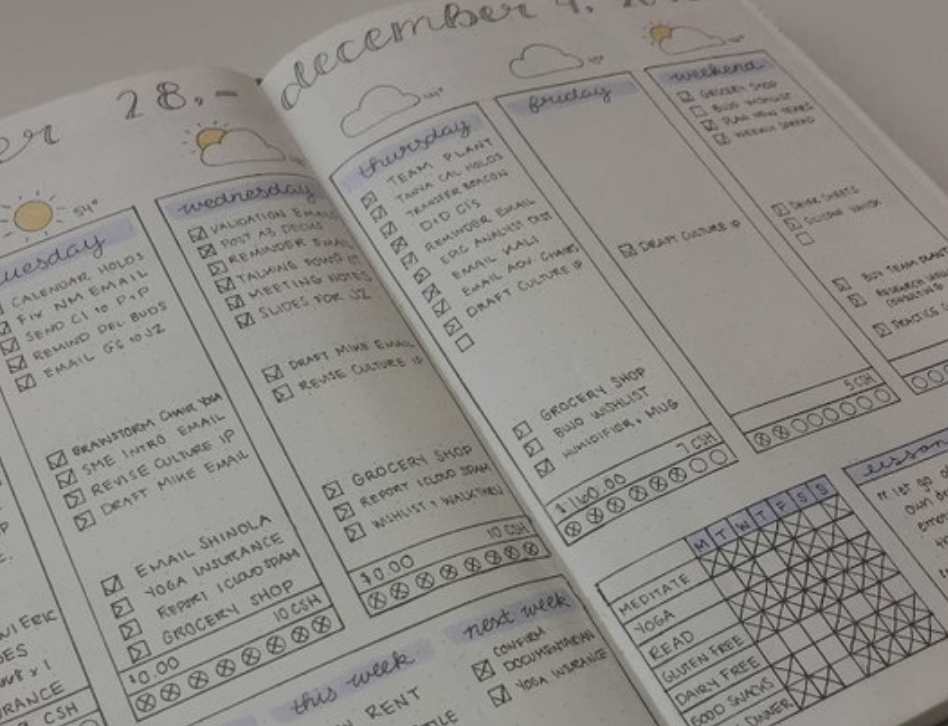 28.-
december 4,
54°
tuesday
CALENDAR HOLDS
FIX NM EMAIL
SEND CI TO P+P
REMIND DEL BUDS
EMAIL GS TO JZ
BRAINSTORM CHAIR YOGA
SME INTRO EMAIL
REVISE CULTURE IP
DRAFT MIKE EMAIL
EMAIL SHINOLA
YOGA INSURANCE
REPORT ICLOUD SPAM
GROCERY SHOP
10 CSH
$0.00
wednesday
VALIDATION EMAIL
POST A3 DECKS
REMINDER EMAIL
TALKING
MEETING NOTES
SLIDES FOR JZ
DRAFT MIKE EMAIL
REVISE CULTURE IP
GROCERY SHOP
REPORT ICLOUD SPAM
WISHLIST + WALKTHRU
10 CSH
$0.00
thursday
TEAM PLANT
TANYA CAL HOLDS
TRANSFER BEACON
DID GIS
REMINDER EMAIL
EPIC ANALYST DOT
EMAIL KALI
EMAIL ADV. CHAIRS
DRAFT CULTURE IP
GROCERY SHOP
BUJO WISHLIST
HUMIDIFIER + MUG
7 CSH
$160.00
friday
DRAFT CULTURE IP
5 CSH
weekend
GROCERY SHOP
BUJO WISHLIST
PLAN NEW YEARS
WEEKLY SPREAD
BUY TEAM PLANT
RESEARCH
PRACTICE
ERIC
CSH
this week
RENT
next week
CONFIRM
DOCUMENTATION
YOGA INSURANCE
M T W T F S S
MEDITATE
YOGA
READ
GLUTEN FREE
DAIRY FREE
GOOD SNACKS
DINNER
"let go of
own